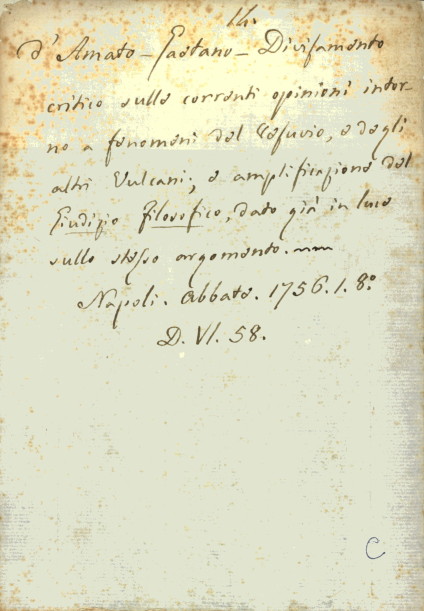 14.
d'Amato - Gaetano - Divisamento
critico sulle correnti opinioni intor-
no a fenomeni del Vesuvio, e degli
altri Vulcani; e amplificazione del
Giudizio filosofico, dato già in luce
sullo stesso argomento.
Napoli. Abbate. 1756. 1. 8°.
D. VI. 58.
C